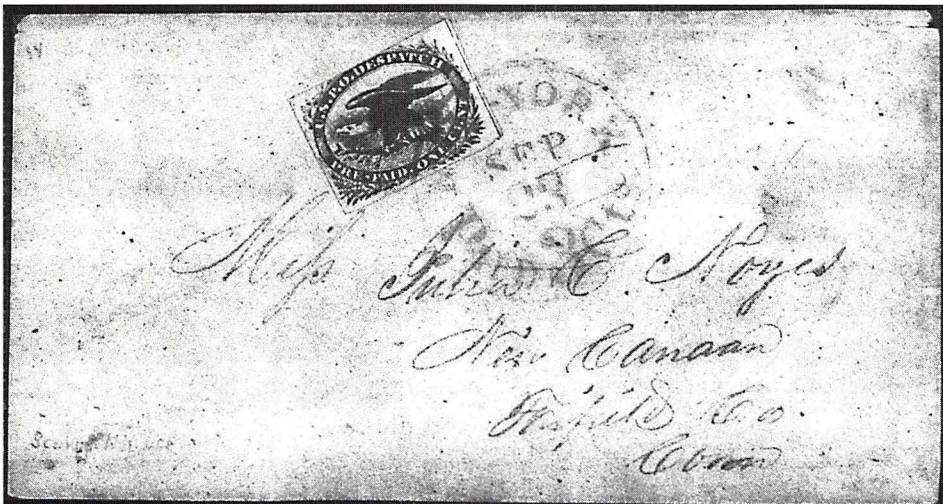 U.S.P.O. DESPATCH
PRE-PAID ONE CENT
YORK
SEP
Miss Julia C. Noyes
New Canaan
Fairfield Co
Conn